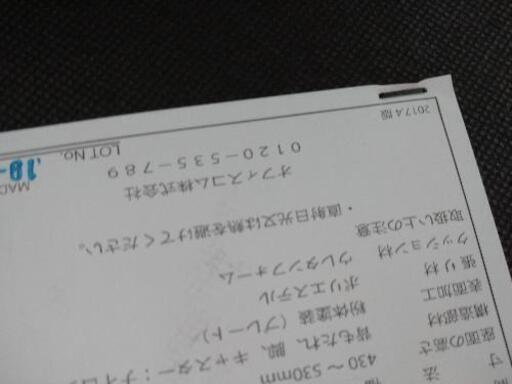 寸 法
座面の高さ 430～530mm
構造部材 背もたれ、脚、キャスター：ナイロ
表面加工 粉体塗装（プレート）
張り材 ポリエステル
クッション材 ウレタンフォーム
取扱い上の注意
・直射日光又は熱を避けてください。
オフィスコム株式会社
0120-535-789
LOT No. .19-
MAD
2017.4版